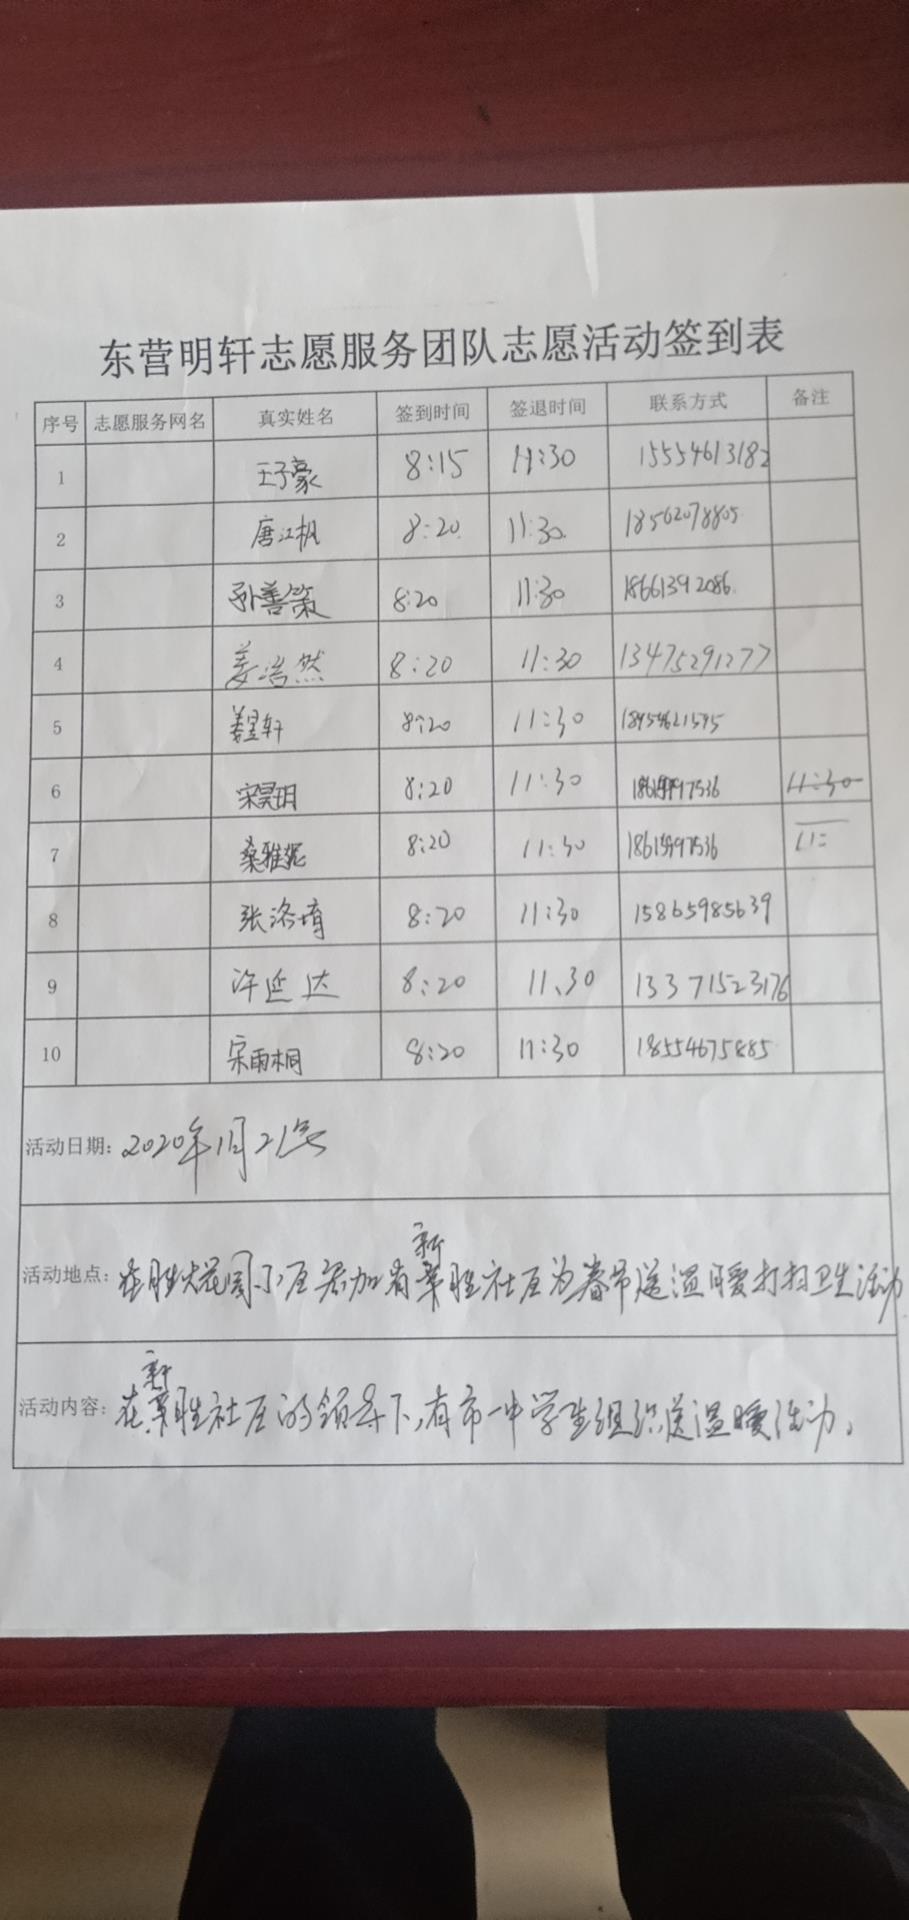 东营明轩志愿服务团队志愿活动签到表
序号 志愿服务网名 真实姓名 签到时间 签退时间 联系方式 备注
1 王子豪 8:15 11:30 15554613182
2 唐江枫 8:20 11:30 18562078805
3 孙善策 8:20 11:30 18661392086
4 姜浩然 8:20 11:30 13475291277
5 姜昱轩 8:20 11:30 18954621595
6 宋昊玥 8:20 11:30 11:30
7 桑雅妮 8:20 11:30 11:
8 张洛堉 8:20 11:30 15865985639
9 许延达 8:20 11.30 13371523176
10 宋雨桐 8:20 11:30 18554675885
活动日期: 2020年1月21号
活动地点: 在胜大花园小区参加有新胜社区为春节送温暖打扫卫生活动
活动内容: 在新胜社区的领导下,有市一中学生组织送温暖活动。